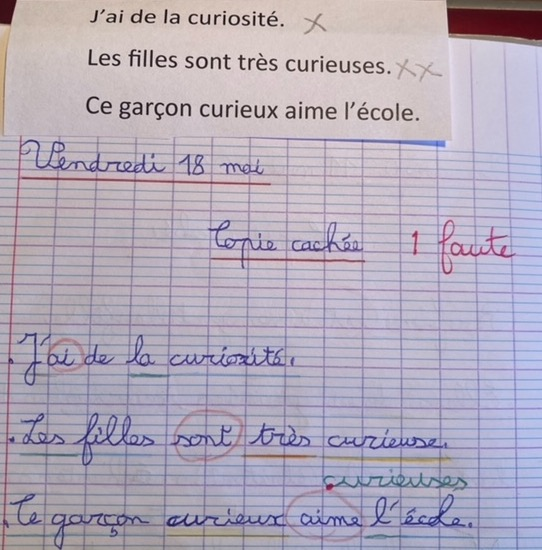 J'ai de la curiosité. X
Les filles sont très curieuses. XX
Ce garçon curieux aime l'école.
Vendredi 18 mai
Copie cachée 1 faute
. J'ai de la curiosité.
. Les filles sont très curieuse.
curieuses
. Ce garçon curieux aime l'école.